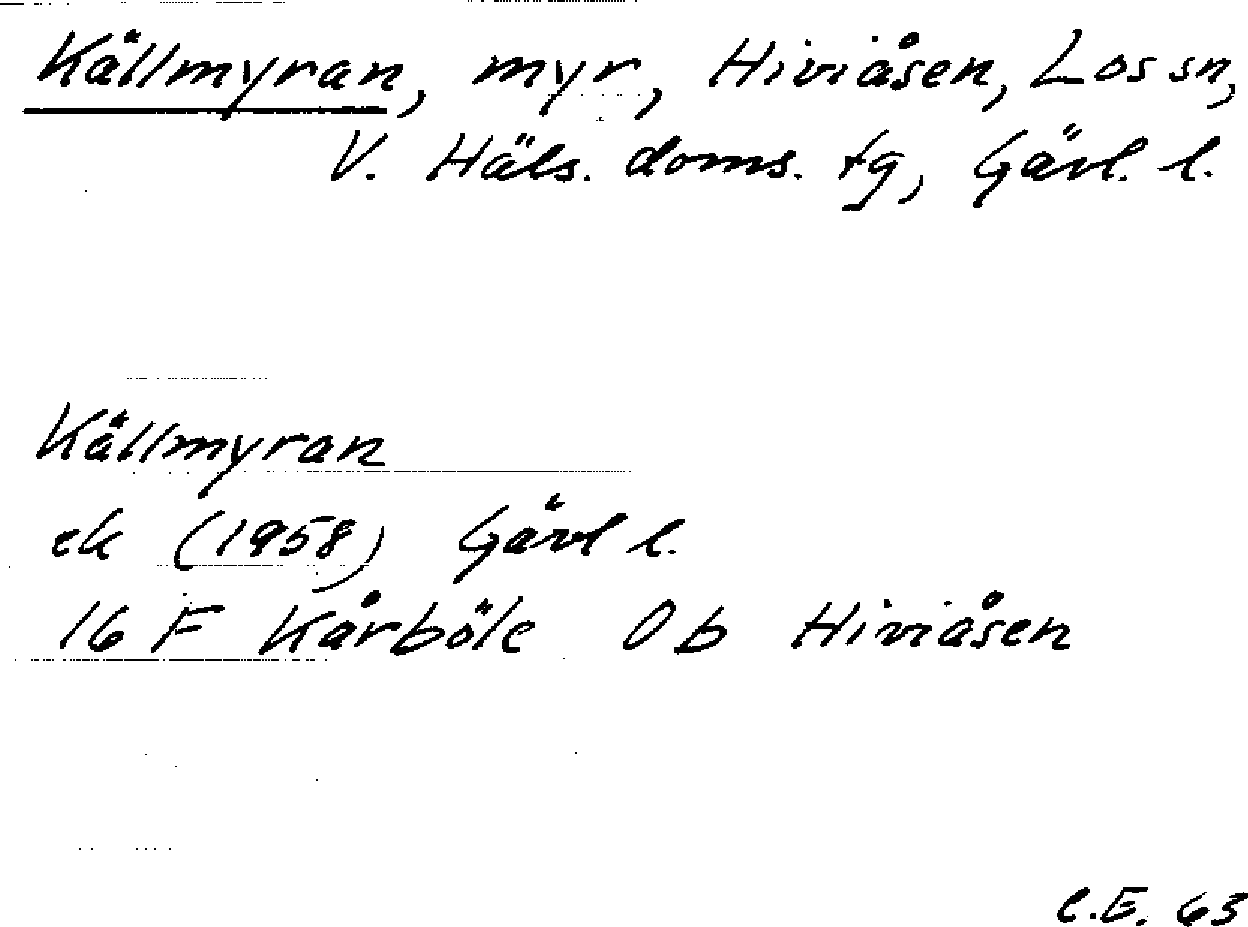 Källmyran, myr, Hiviåsen, Los sn,
V. Häls. doms. tg, Gävl. l.
Källmyran
ek (1958) Gävl l.
16 F Kårböle 0 b Hiviåsen
C.E. 63